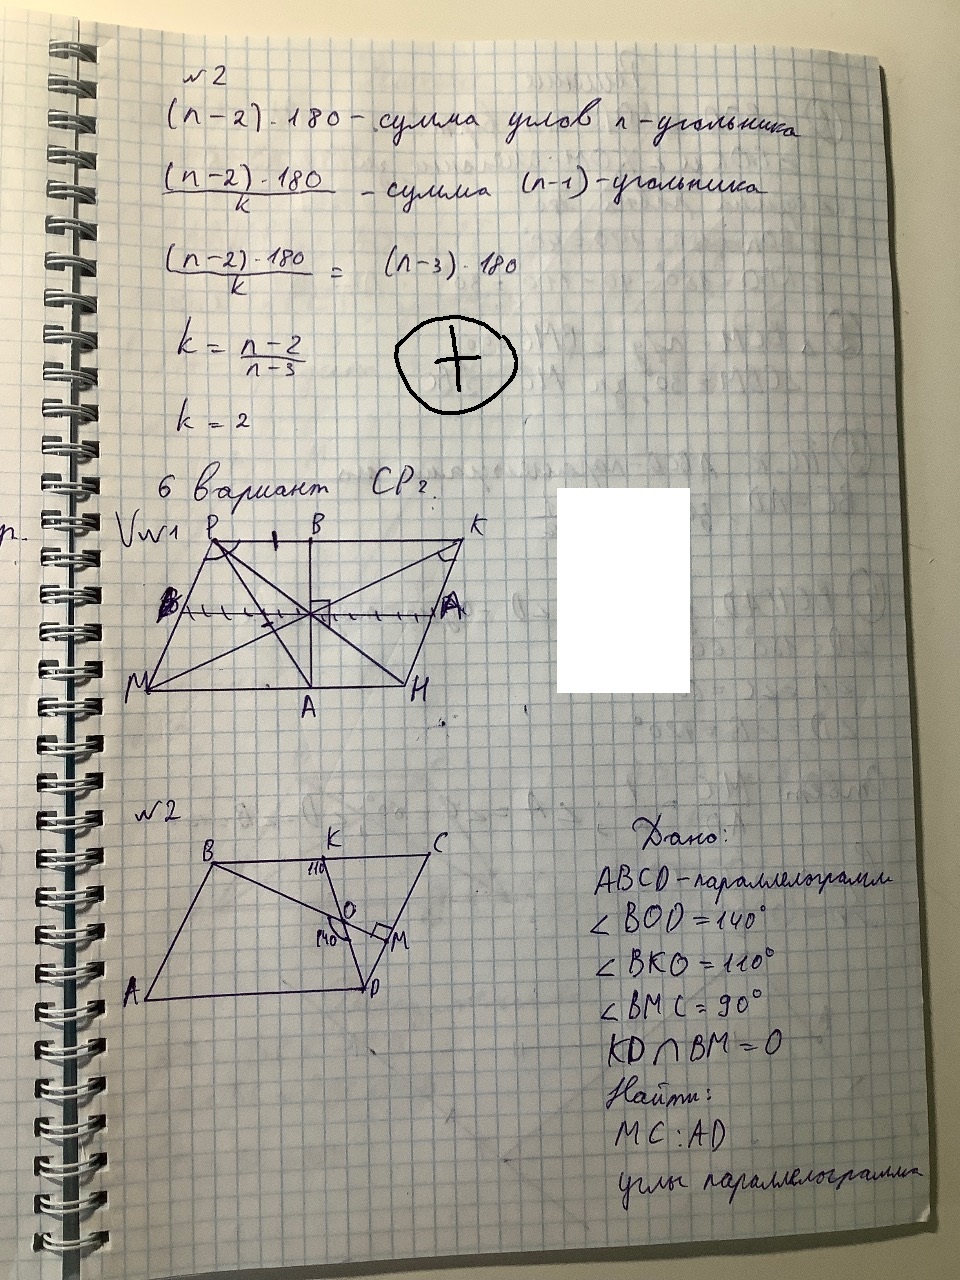 №2
(n-2)·180 - сумма углов n-угольника
(n-2)·180 / k - сумма (n-1)-угольника
(n-2)·180 / k = (n-3)·180
k = n-2 / n-3
k = 2
6 вариант СР2.
V№1
P B K
B A
M A H
№2
B K C
110
O
140 M
A D
Дано:
ABCD-параллелограмм
∠BOD=140°
∠BKO=110°
∠BMC=90°
KD∩BM=O
Найти:
MC:AD
углы параллелограмма